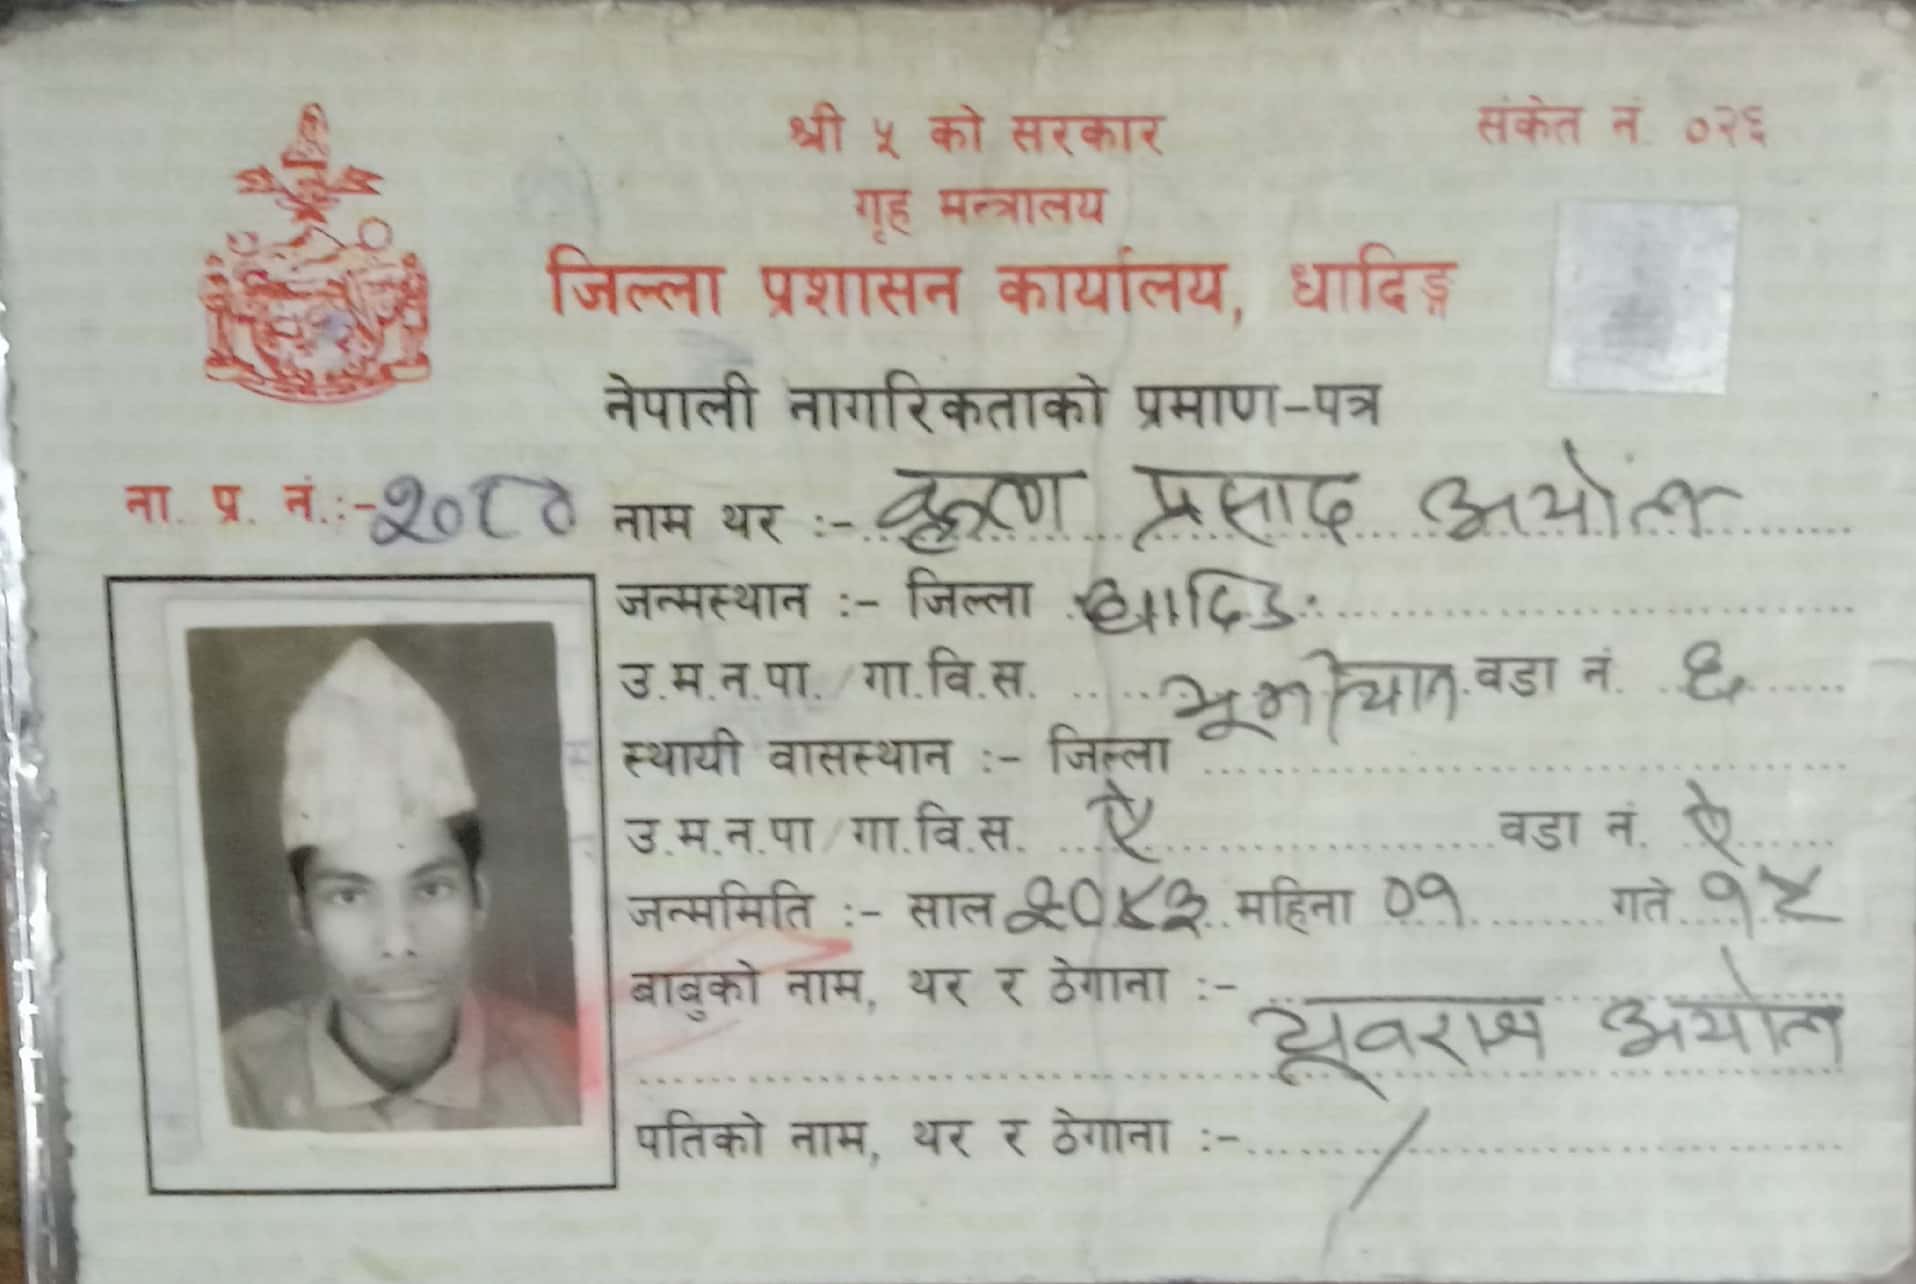 श्री ५ को सरकार
संकेत नं. ०२६
गृह मन्त्रालय
जिल्ला प्रशासन कार्यालय, धादिङ्ग
नेपाली नागरिकताको प्रमाण-पत्र
ना. प्र. नं.:- २०८०
नाम थर :- कृष्ण प्रसाद अर्याल
जन्मस्थान :- जिल्ला धादिङ
उ.म.न.पा./गा.वि.स. वडा नं. ६
स्थायी वासस्थान :- जिल्ला
उ.म.न.पा/गा.वि.स. ऐ वडा नं. ऐ
जन्ममिति :- साल २०४३ महिना ०१ गते १५
बाबुको नाम, थर र ठेगाना :-
यूवराज अर्याल
पतिको नाम, थर र ठेगाना :- /